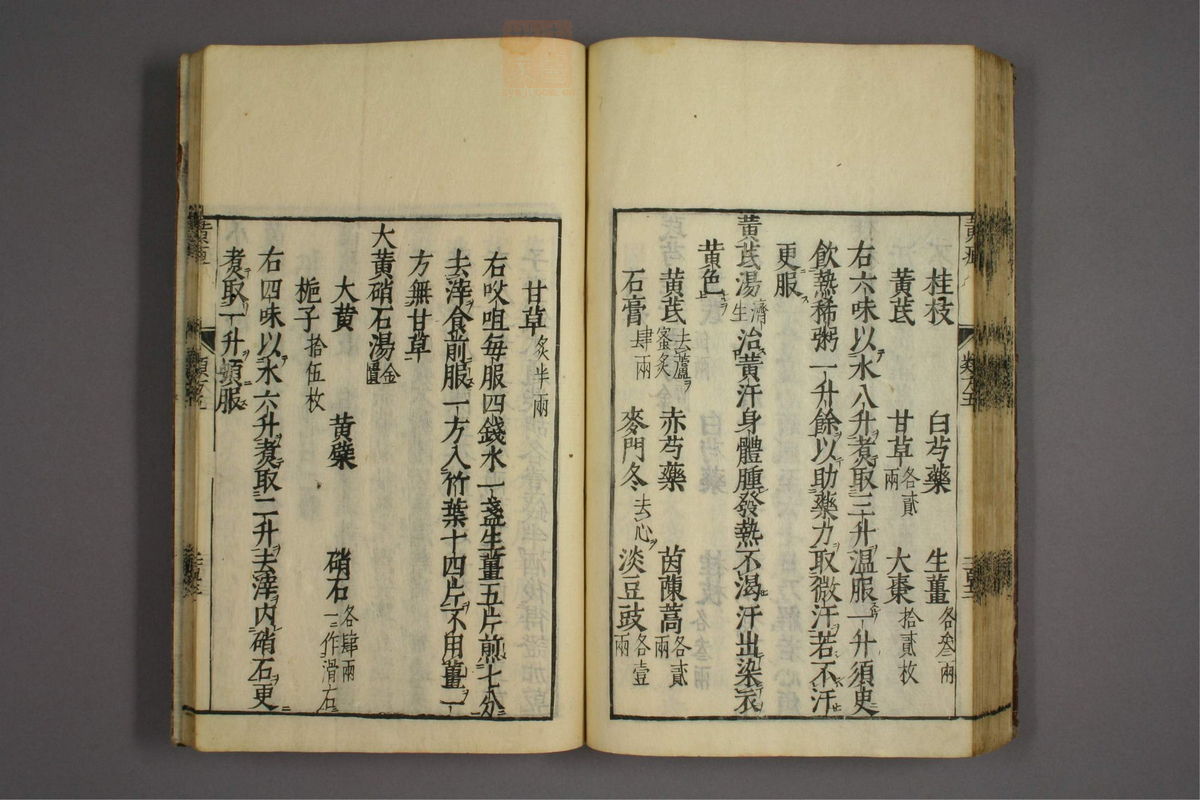 桂枝 白芍藥 生薑各叁兩
黃芪 甘草各貳兩 大棗拾貳枚
右六味以水八升煑取三升溫服一升須臾
飲熱稀粥一升餘以助藥力取微汗若不汗
更服
黃芪湯濟生 治黃汗身體腫發熱不渴汗出染衣
黃色
黃芪去蘆蜜炙 赤芍藥 茵蔯蒿各貳兩
石膏肆兩 麥門冬去心 淡豆豉各壹兩
甘草炙半兩
右㕮咀每服四錢水一盞生薑五片煎七分
去滓食前服一方入竹葉十四片不用薑一
方無甘草
大黃硝石湯金匱
大黃 黃檗 硝石各肆兩一作滑石
梔子拾伍枚
右四味以水六升煑取二升去滓内硝石更
煑取一升頓服